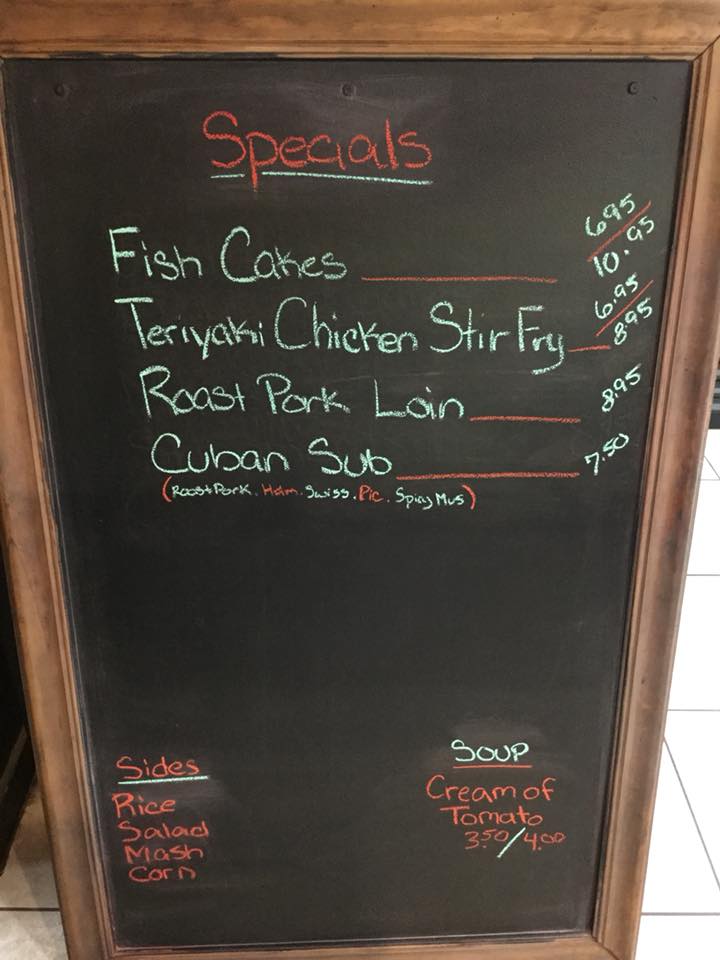 Specials
Fish Cakes 6.95/10.95
Teriyaki Chicken Stir Fry 6.95/8.95
Roast Pork Loin 8.95
Cuban Sub 7.50
(Roast Pork. Ham. Swiss. Pic. Spicy Mus)
Sides
Rice
Salad
Mash
Corn
Soup
Cream of
Tomato
3.50/4.00